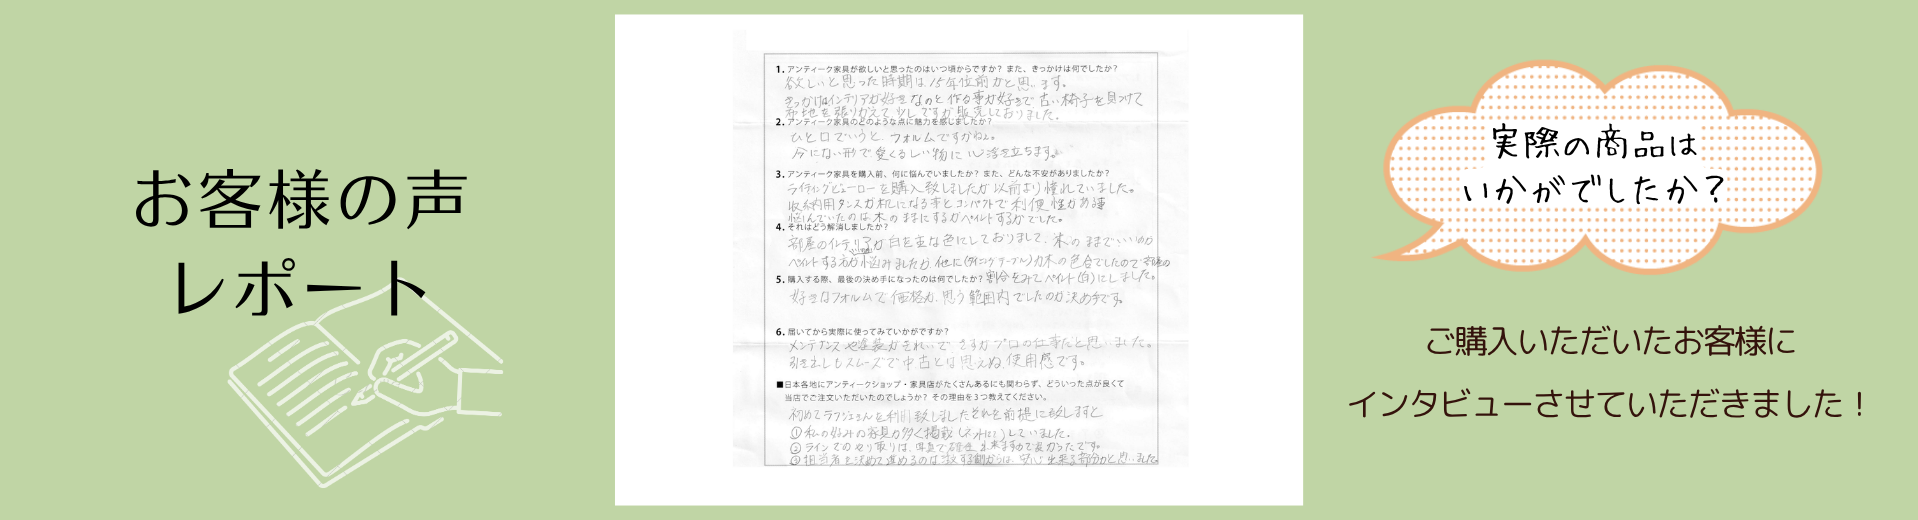 お客様の声
レポート
1. アンティーク家具が欲しいと思ったのはいつ頃からですか？また、きっかけは何でしたか？
欲しいと思った時期は15年位前かと思います。
きっかけはインテリアが好きなのと作る事が好きで古い椅子を見つけて
布地を張りかえて少しですが販売しておりました。
2. アンティーク家具のどのような点に魅力を感じましたか？
ひと口でいうと、フォルムですかねぇ。
今にない形で愛くるしい物に心浮き立ちます。
3. アンティーク家具を購入前、何に悩んでいましたか？また、どんな不安がありましたか？
ライティングビューローを購入致しましたが以前より憧れていました。
収納用タンスが机になる事とコンパクトで利便性がある
悩んでいたのは木のままにするかペイントするかでした。
4. それはどう解消しましたか？
部屋のインテリアが白を主な色にしておりまして、木のままでいいのか
ペイントする方が悩みましたが、他に(ダイニングテーブル)が木の色合でしたので
割合をみてペイント(白)にしました。
5. 購入する際、最後の決め手になったのは何でしたか？
好きなフォルムで価格が、思う範囲内でしたのが決め手です。
6. 届いてから実際に使ってみていかがですか？
メンテナンスや塗装がきれいでさすがプロの仕事だと思いました。
引き出しもスムーズで中古とは思えぬ使用感です。
■日本各地にアンティークショップ・家具店がたくさんあるにも関わらず、どういった点が良くて
当店でご注文いただいたのでしょうか？その理由を3つ教えてください。
初めてラフジュさんを利用致しましたそれを前提に致しますと
①私の好みの家具が多く掲載(ネットに)していました。
②ラインでのやり取りは、写真で確認出来ますので良かったです。
③担当者を決めて進めるのは 安心出来る部分かと思いました。
実際の商品は
いかがでしたか？
ご購入いただいたお客様に
インタビューさせていただきました！